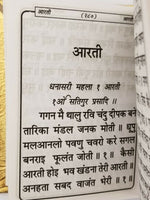 आरती (१८०) आरती
आरती
धनासरी महला १ आरती
१ओं सतिगुर प्रसादि ॥
गगन मै थालु रवि चंदु दीपक बने
तारिका मंडल जनक मोती ॥ धूपु
मलआनलो पवणु चवरो करे सगल
बनराइ फूलंत जोती ॥ १ ॥ कैसी
आरती होइ भव खंडना तेरी आरती ॥
अनहता सबद वाजंत भेरी ॥ १ ॥